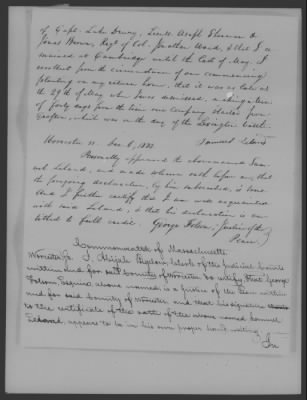 of Capt. Luke Drury, Lieut. Asaph Sherman &
Jonas Brown, Regt of Col. Jonathan Ward, & that I re
mained at Cambridge until the last of May. I
recollect from the circumstance of our commencing
planting on my return home, that it was as late as
the 29th of May when I was dismissed, making a term
of forty days from the time our company started from
Grafton, which was on the day of the Lexington battle.
Worcester ss. Dec. 8, 1832. Samuel Leland
Personally appeared the abovenamed Sam
uel Leland, and made solemn oath before me, that
the foregoing declaration, by him subscribed, is true.
And I further certify that I am well acquainted
with said Leland, & that his declaration is en
titled to full credit. George Folsom, Justice of the
Peace.
Commonwealth of Massachusetts
Worcester ss. I, Abijah Bigelow, Clerk of the Judicial Courts
within and for said County of Worcester do certify that George
Folsom Esquire, above named is a Justice of the Peace within
and for said County of Worcester and that his signature
to the certificate of the oath of the above named Samuel
Leland, appears to be in his own proper hand writing
In